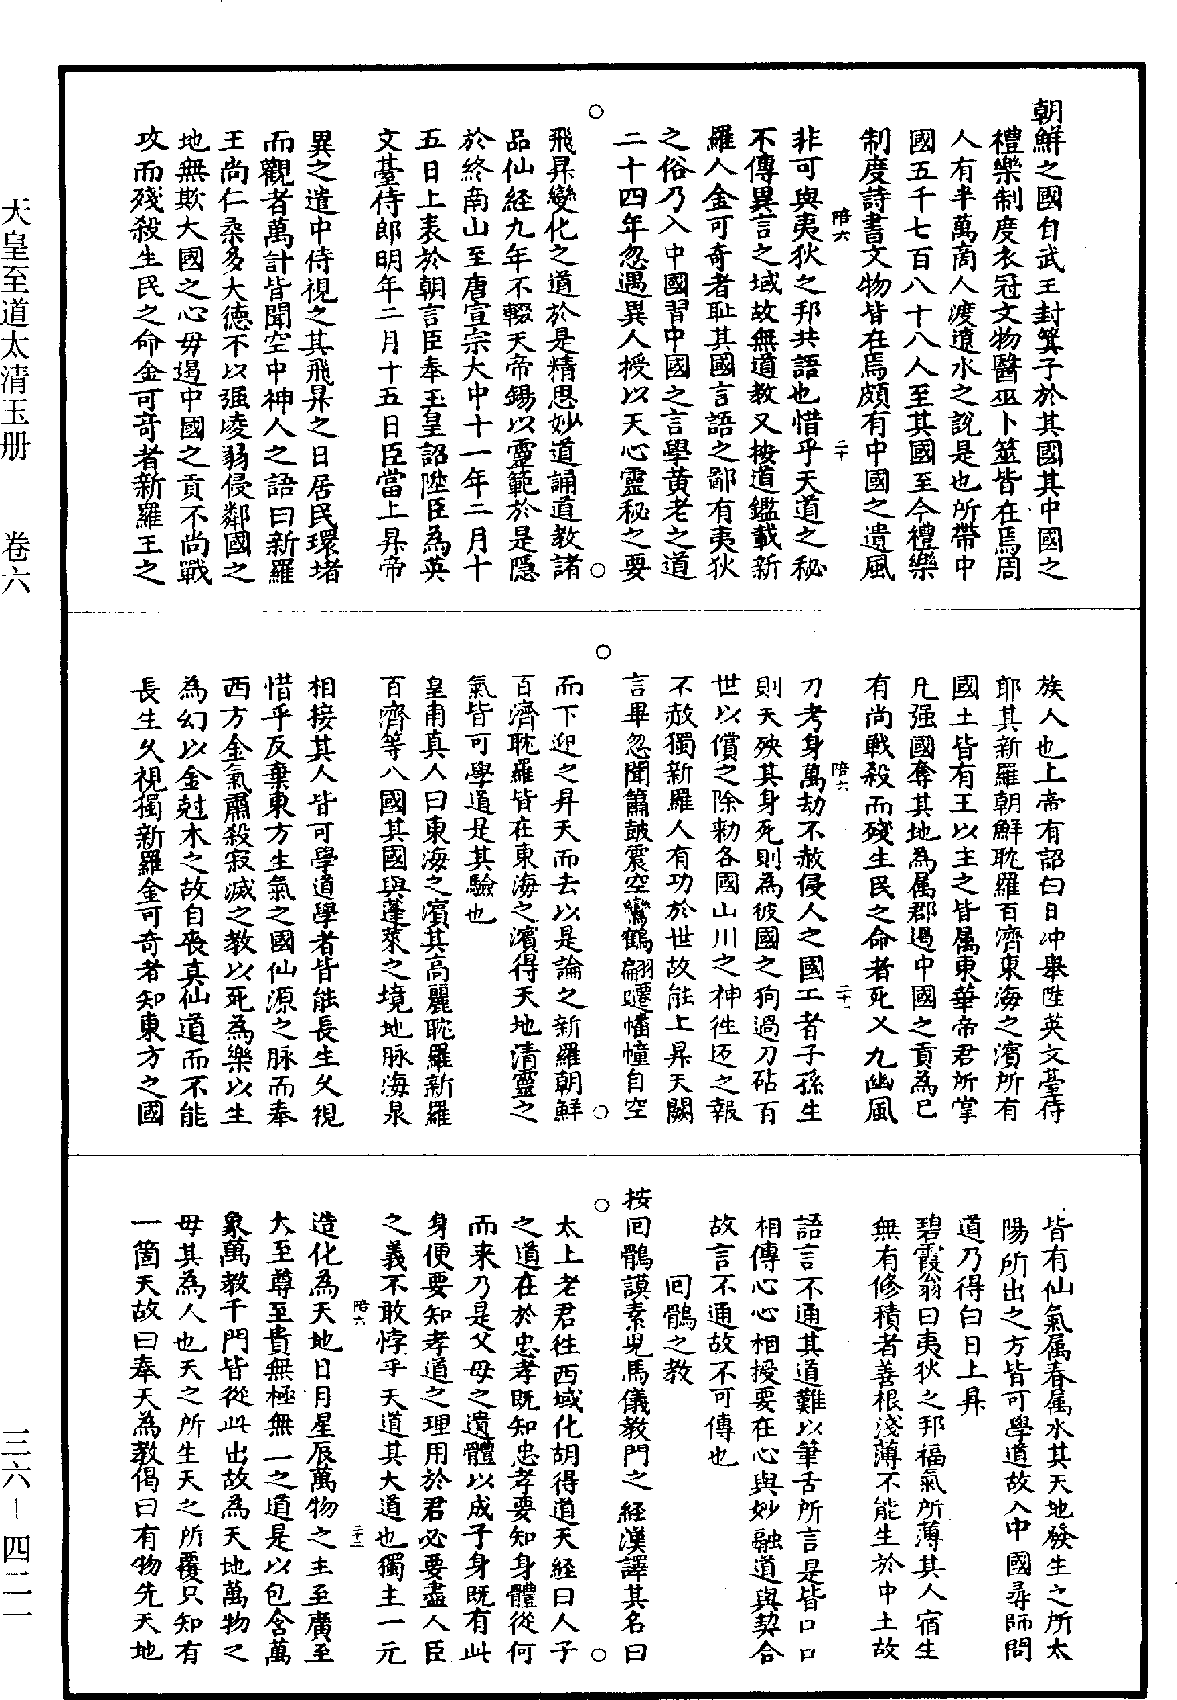 朝鮮之國自武王封箕子於其國其中國之
禮樂制度衣冠文物醫巫卜筮皆在焉周
人有半萬商人渡遼水之說是也所帶中
國五千七百八十八人至其國至今禮樂
制度詩書文物皆在焉頗有中國之遺風
陪六
二十
非可與夷狄之邦共語也惜乎天道之秘
不傳異言之域故無道教又按道鑑載新
羅人金可奇者耻其國言語之鄙有夷狄
之俗乃入中國習中國之言學黃老之道
二十四年忽遇異人授以天心靈秘之要
飛昇變化之道於是精思妙道誦道教諸
品仙経九年不輟天帝錫以靈範於是隱
於終南山至唐宣宗大中十一年二月十
五日上表於朝言臣奉玉皇詔陞臣為英
文臺侍郎明年二月十五日臣當上昇帝
異之遣中侍視之其飛昇之日居民環堵
而觀者萬計皆聞空中神人之語曰新羅
王尚仁柔多大德不以强凌弱侵鄰國之
地無欺大國之心毋遏中國之貢不尚戰
攻而殘殺生民之命金可奇者新羅王之
族人也上帝有詔白日冲舉陞英文臺侍
郎其新羅朝鮮耽羅百濟東海之濱所有
國土皆有王以主之皆属東華帝君所掌
凡强國奪其地為属郡遏中國之貢為已
有尚戰殺而殘生民之命者死乂九幽風
陪六
二十一
刀考身萬劫不赦侵人之國工者子孫生
則天殃其身死則為彼國之狗過刀砧百
世以償之除勑各國山川之神徃迓之報
不赦獨新羅人有功於世故能上昇天闕
言畢忽聞簫皷震空鸞鶴翩躚幡幢自空
而下迎之昇天而去以是論之新羅朝鮮
百濟耽羅皆在東海之濱得天地清靈之
氣皆可學道是其驗也
皇甫真人曰東海之濱其高麗耽羅新羅
百濟等八國其國與蓬萊之境地脉海泉
相接其人皆可學道學者皆能長生乆視
惜乎反棄東方生氣之國仙源之脉而奉
西方金氣肅殺寂滅之教以死為樂以生
為幻以金尅木之故自喪真仙道而不能
長生乆視獨新羅金可奇者知東方之國
皆有仙氣属春属水其天地發生之所太
陽所出之方皆可學道故入中國尋師問
道乃得白日上昇
碧霞翁曰夷狄之邦福氣所薄其人宿生
無有修積者善根淺薄不能生於中土故
語言不通其道難以筆舌所言是皆口口
相傳心心相授要在心與妙融道與契合
故言不通故不可傳也
回鶻之教
按回鶻謨素児馬儀教門之経漢譯其名曰
太上老君徃西域化胡得道天経曰人子
之道在於忠孝既知忠孝要知身體從何
而来乃是父母之遺體以成子身既有此
身便要知孝道之理用於君必要盡人臣
之義不敢悖乎天道其大道也獨主一元
陪六
二十二
造化為天地日月星辰萬物之主至廣至
大至尊至貴無極無一之道是以包含萬
象萬教千門皆從此出故為天地萬物之
母其為人也天之所生天之所覆只知有
一箇天故曰奉天為教偈曰有物先天地
天皇至道太清玉册 卷六
三六－四二一